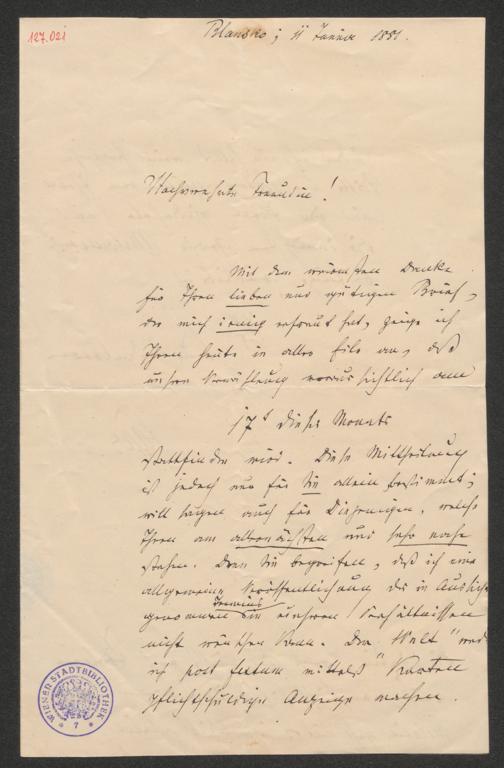 127.021
Blansko, 11 Januar 1881.
Hochverehrte Freundin!
Mit dem wärmsten Danke
für Ihren lieben und gütigen Brief,
der mich innig erfreut hat, zeige ich
Ihnen heute in aller Eile an, daß
unsere Vermählung voraussichtlich am
17t dieses Monats
stattfinden wird. Diese Mittheilung
ist jedoch nur für Sie allein bestimmt;
will sagen auch für Diejenigen, welche
Ihnen am allernächsten und sehr nahe
stehen. Denn Sie begreifen, daß ich eine
allgemeine Veröffentlichung des in Aussicht
Termins
genommenen in unseren Verhältnissen
nicht wünschen kann. Der "Welt" werde
ich post festum mittels Karten
pflichtschuldige Anzeige machen.
WIENER STADTBIBLIOTHEK
* 7 *